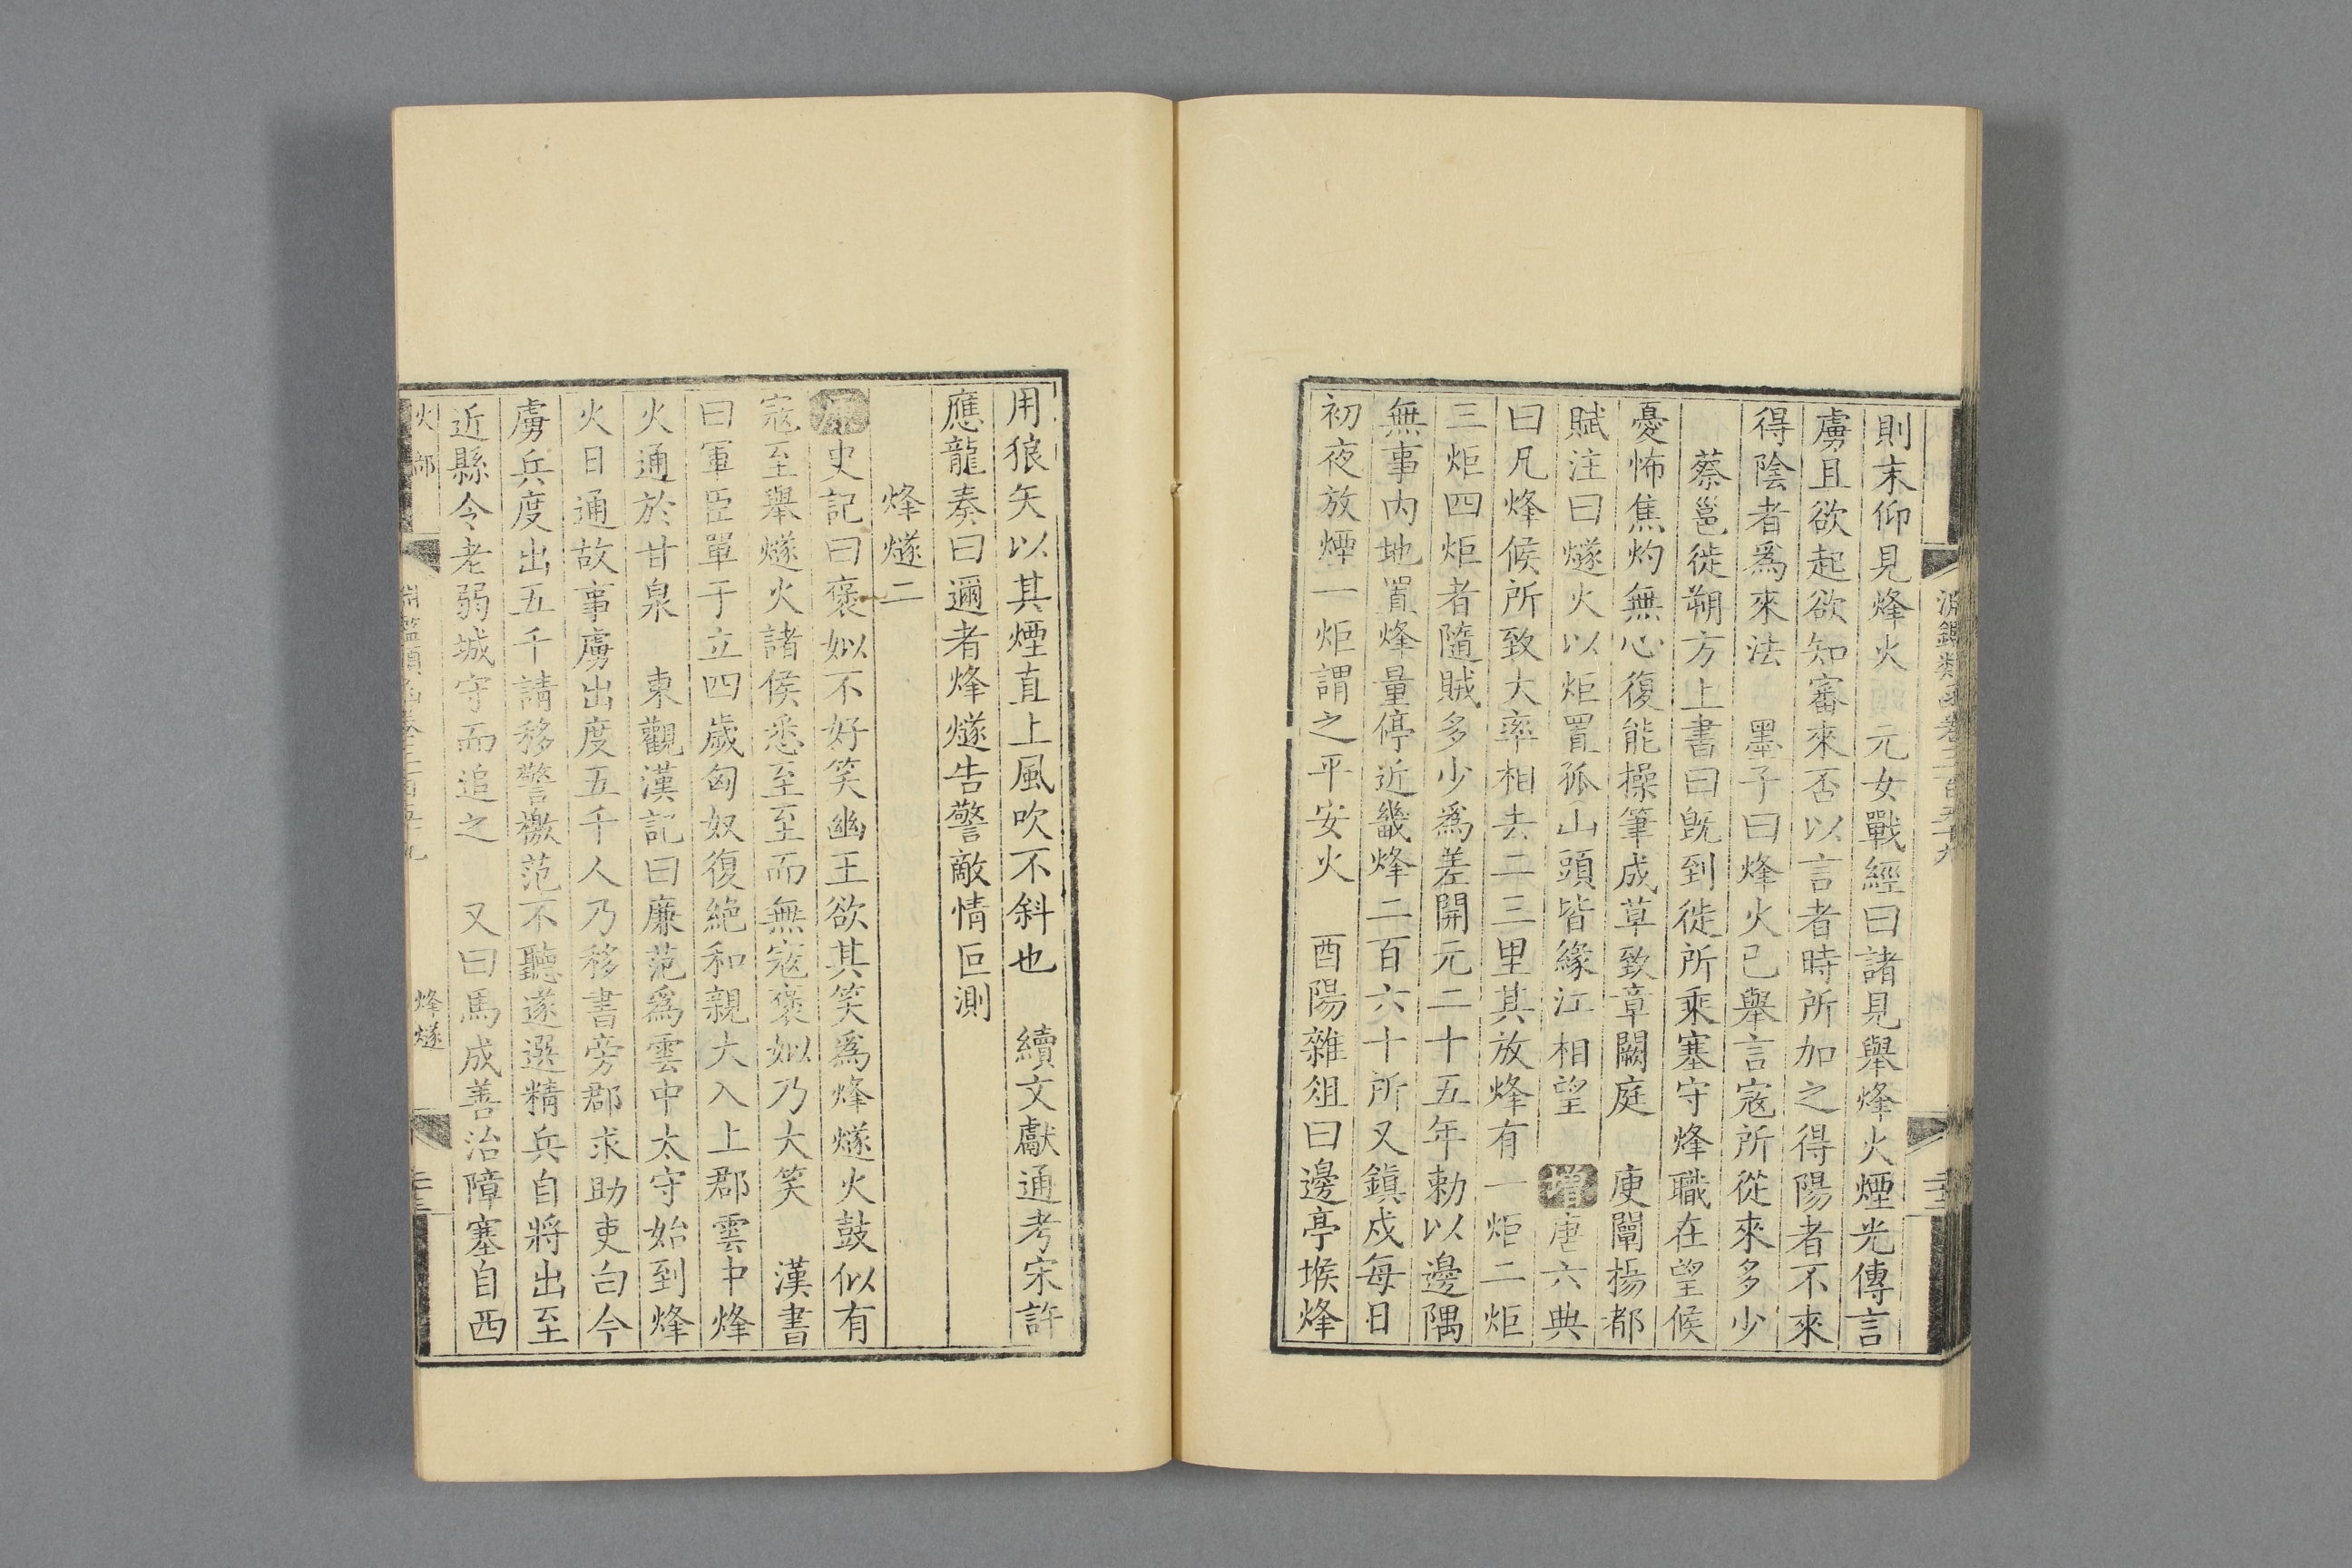 淵鑑類函卷三百五十九
則末仰見烽火 元女戰經曰諸見舉烽火煙光傳言
虜且欲起欲知審來否以言者時所加之得陽者不來
得陰者爲來法 墨子曰烽火已舉言寇所從來多少
蔡邕徙朔方上書曰旣到徙所乘塞守烽職在望候
憂怖焦灼無心復能操筆成草致章闕庭 庾闡揚都
賦注曰燧火以炬置孤山頭皆緣江相望 增唐六典
曰凡烽候所致大率相去二三里其放烽有一炬二炬
三炬四炬者隨賊多少爲差開元二十五年勅以邊隅
無事內地置烽量停近畿烽二百六十所又鎮戍每日
初夜放煙一炬謂之平安火 酉陽雜俎曰邊亭堠烽
用狼矢以其煙直上風吹不斜也 續文獻通考宋許
應龍奏曰邇者烽燧告警敵情叵測
烽燧二
史記曰褒姒不好笑幽王欲其笑爲烽燧火鼓似有
寇至舉燧火諸侯悉至至而無寇褒姒乃大笑 漢書
曰軍臣單于立四歲匈奴復絕和親大入上郡雲中烽
火通於甘泉 東觀漢記曰廉范爲雲中太守始到烽
火日通故事虜出度五千人乃移書旁郡求助吏白今
虜兵度出五千請移警檄范不聽遂選精兵自將出至
近縣令老弱城守而追之 又曰馬成善治障塞自西
火部
淵鑑類函卷三百五十九
烽燧